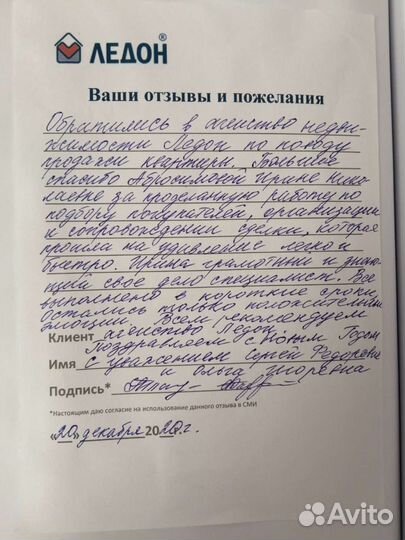 ЛЕДОН®
Ваши отзывы и пожелания
Обратились в агенство недви-
жимости Ледон по поводу
продажи квартиры. Большое
спасибо Абросимовой Ирине Нико-
лаевне за проделанную работу по
подбору покупателей, организации
и сопровождении сделки, которая
прошла на удивление легко и
быстро. Ирина грамотный и знаю-
щий своё дело специалист. Все
выполнено в короткие сроки,
остались только положительные
эмоции. Всем рекомендуем
Клиент агенство Ледон.
Поздравляем с Новым Годом
Имя с уважением Сергей Федорович
и Ольга Игоревна
Подпись*
*Настоящим даю согласие на использование данного отзыва в СМИ
«20» декабря 2020г.
Avito